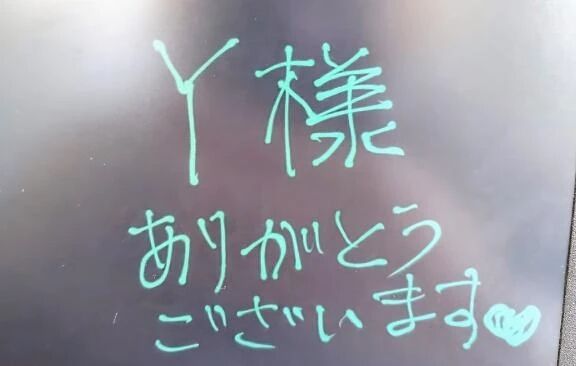 Y様
ありがとう
ございます♥